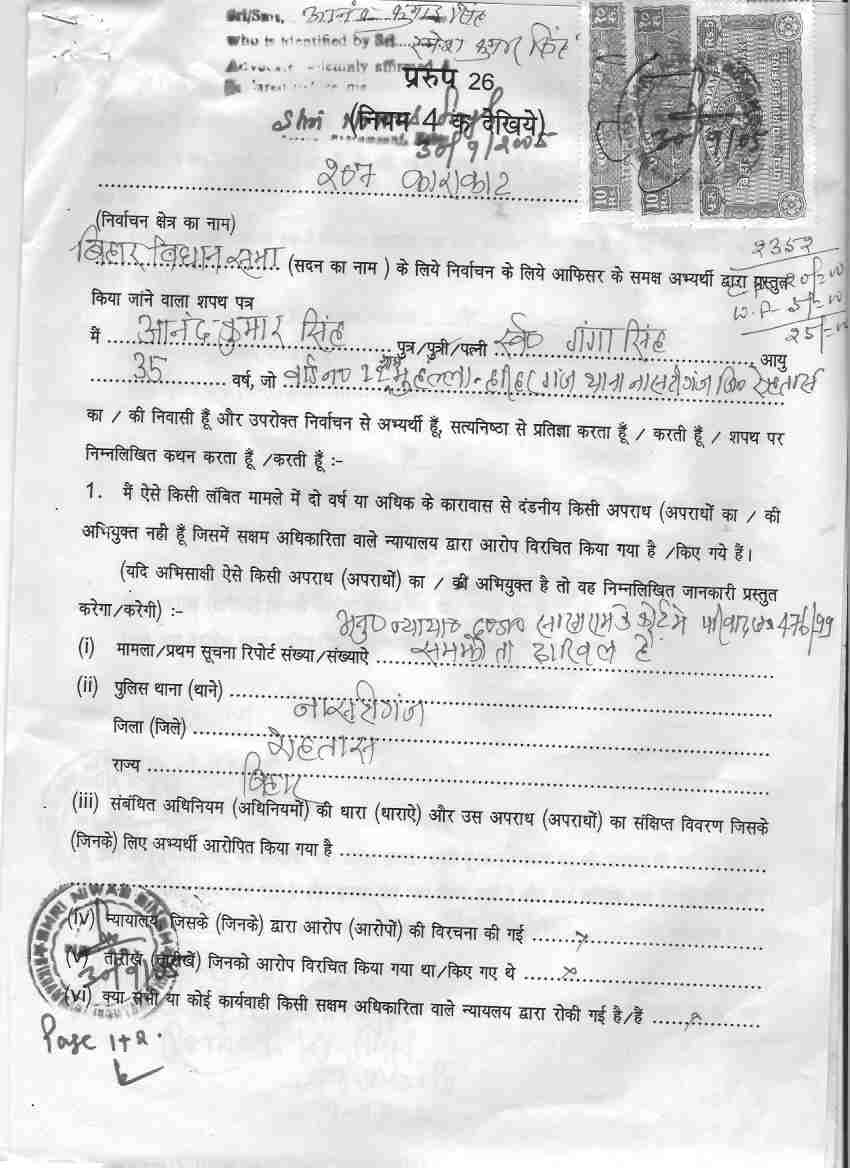 Sri/Sms, आनंद कुमार सिंह
who is identified by Sri रमेश कुमार सिंह
Advocate solemnly affirmed
प्ररुप 26
(नियम 4 क देखिये)
Shri
30/9/2005
30/9/05
207 काराकाट
(निर्वाचन क्षेत्र का नाम)
2352
बिहार विधान सभा (सदन का नाम ) के लिये निर्वाचन के लिये आफिसर के समक्ष अभ्यर्थी द्वारा प्रस्तुत
किया जांने वाला शपथ पत्र
25/=00
में आनंद कुमार सिंह पुत्र/पुत्री/पत्नी स्व० गंगा सिंह आयु
35 वर्ष, जो वार्ड न० 11 मुहल्ला- हरिहरगंज थाना नासरीगंज जि० रोहतास
का / की निवासी हूँ और उपरोक्त निर्वाचन से अभ्यर्थी हूँ, सत्यनिष्ठा से प्रतिज्ञा करता हूँ / करती हूँ / शपथ पर
निम्नलिखित कथन करता हूँ /करती हूँ :-
1. मैं ऐसे किसी लंबित मामले में दो वर्ष या अधिक के कारावास से दंडनीय किसी अपराध (अपराधों का / की
अभियुक्त नही हूँ जिसमें सक्षम अधिकारिता वाले न्यायालय द्वारा आरोप विरचित किया गया है /किए गये हैं।
(यदि अभिसाक्षी ऐसे किसी अपराध (अपराधों) का / की अभियुक्त है तो वह निम्नलिखित जानकारी प्रस्तुत
करेगा/करेगी) :-
कोर्ट मे परिवाद 476/99
(i) मामला/प्रथम सूचना रिपोर्ट संख्या/संख्याऐ समझौता दाखिल है
(ii) पुलिस थाना (थाने) नासरीगंज
जिला (जिले) रोहतास
राज्य बिहार
(iii) संबंधित अधिनियम (अधिनियमों) की धारा (धाराऐ) और उस अपराध (अपराधों) का संक्षिप्त विवरण जिसके
(जिनके) लिए अभ्यर्थी आरोपित किया गया है
(iv) न्यायालय जिसके (जिनके) द्वारा आरोप (आरोपों) की विरचना की गई
(v) तारीखें (तारीखें) जिनको आरोप विरचित किया गया था/किए गए थे
30/9/05
(vi) क्या सभी या कोई कार्यवाही किसी सक्षम अधिकारिता वाले न्यायलय द्वारा रोकी गई है/हैं
Page 1+2.